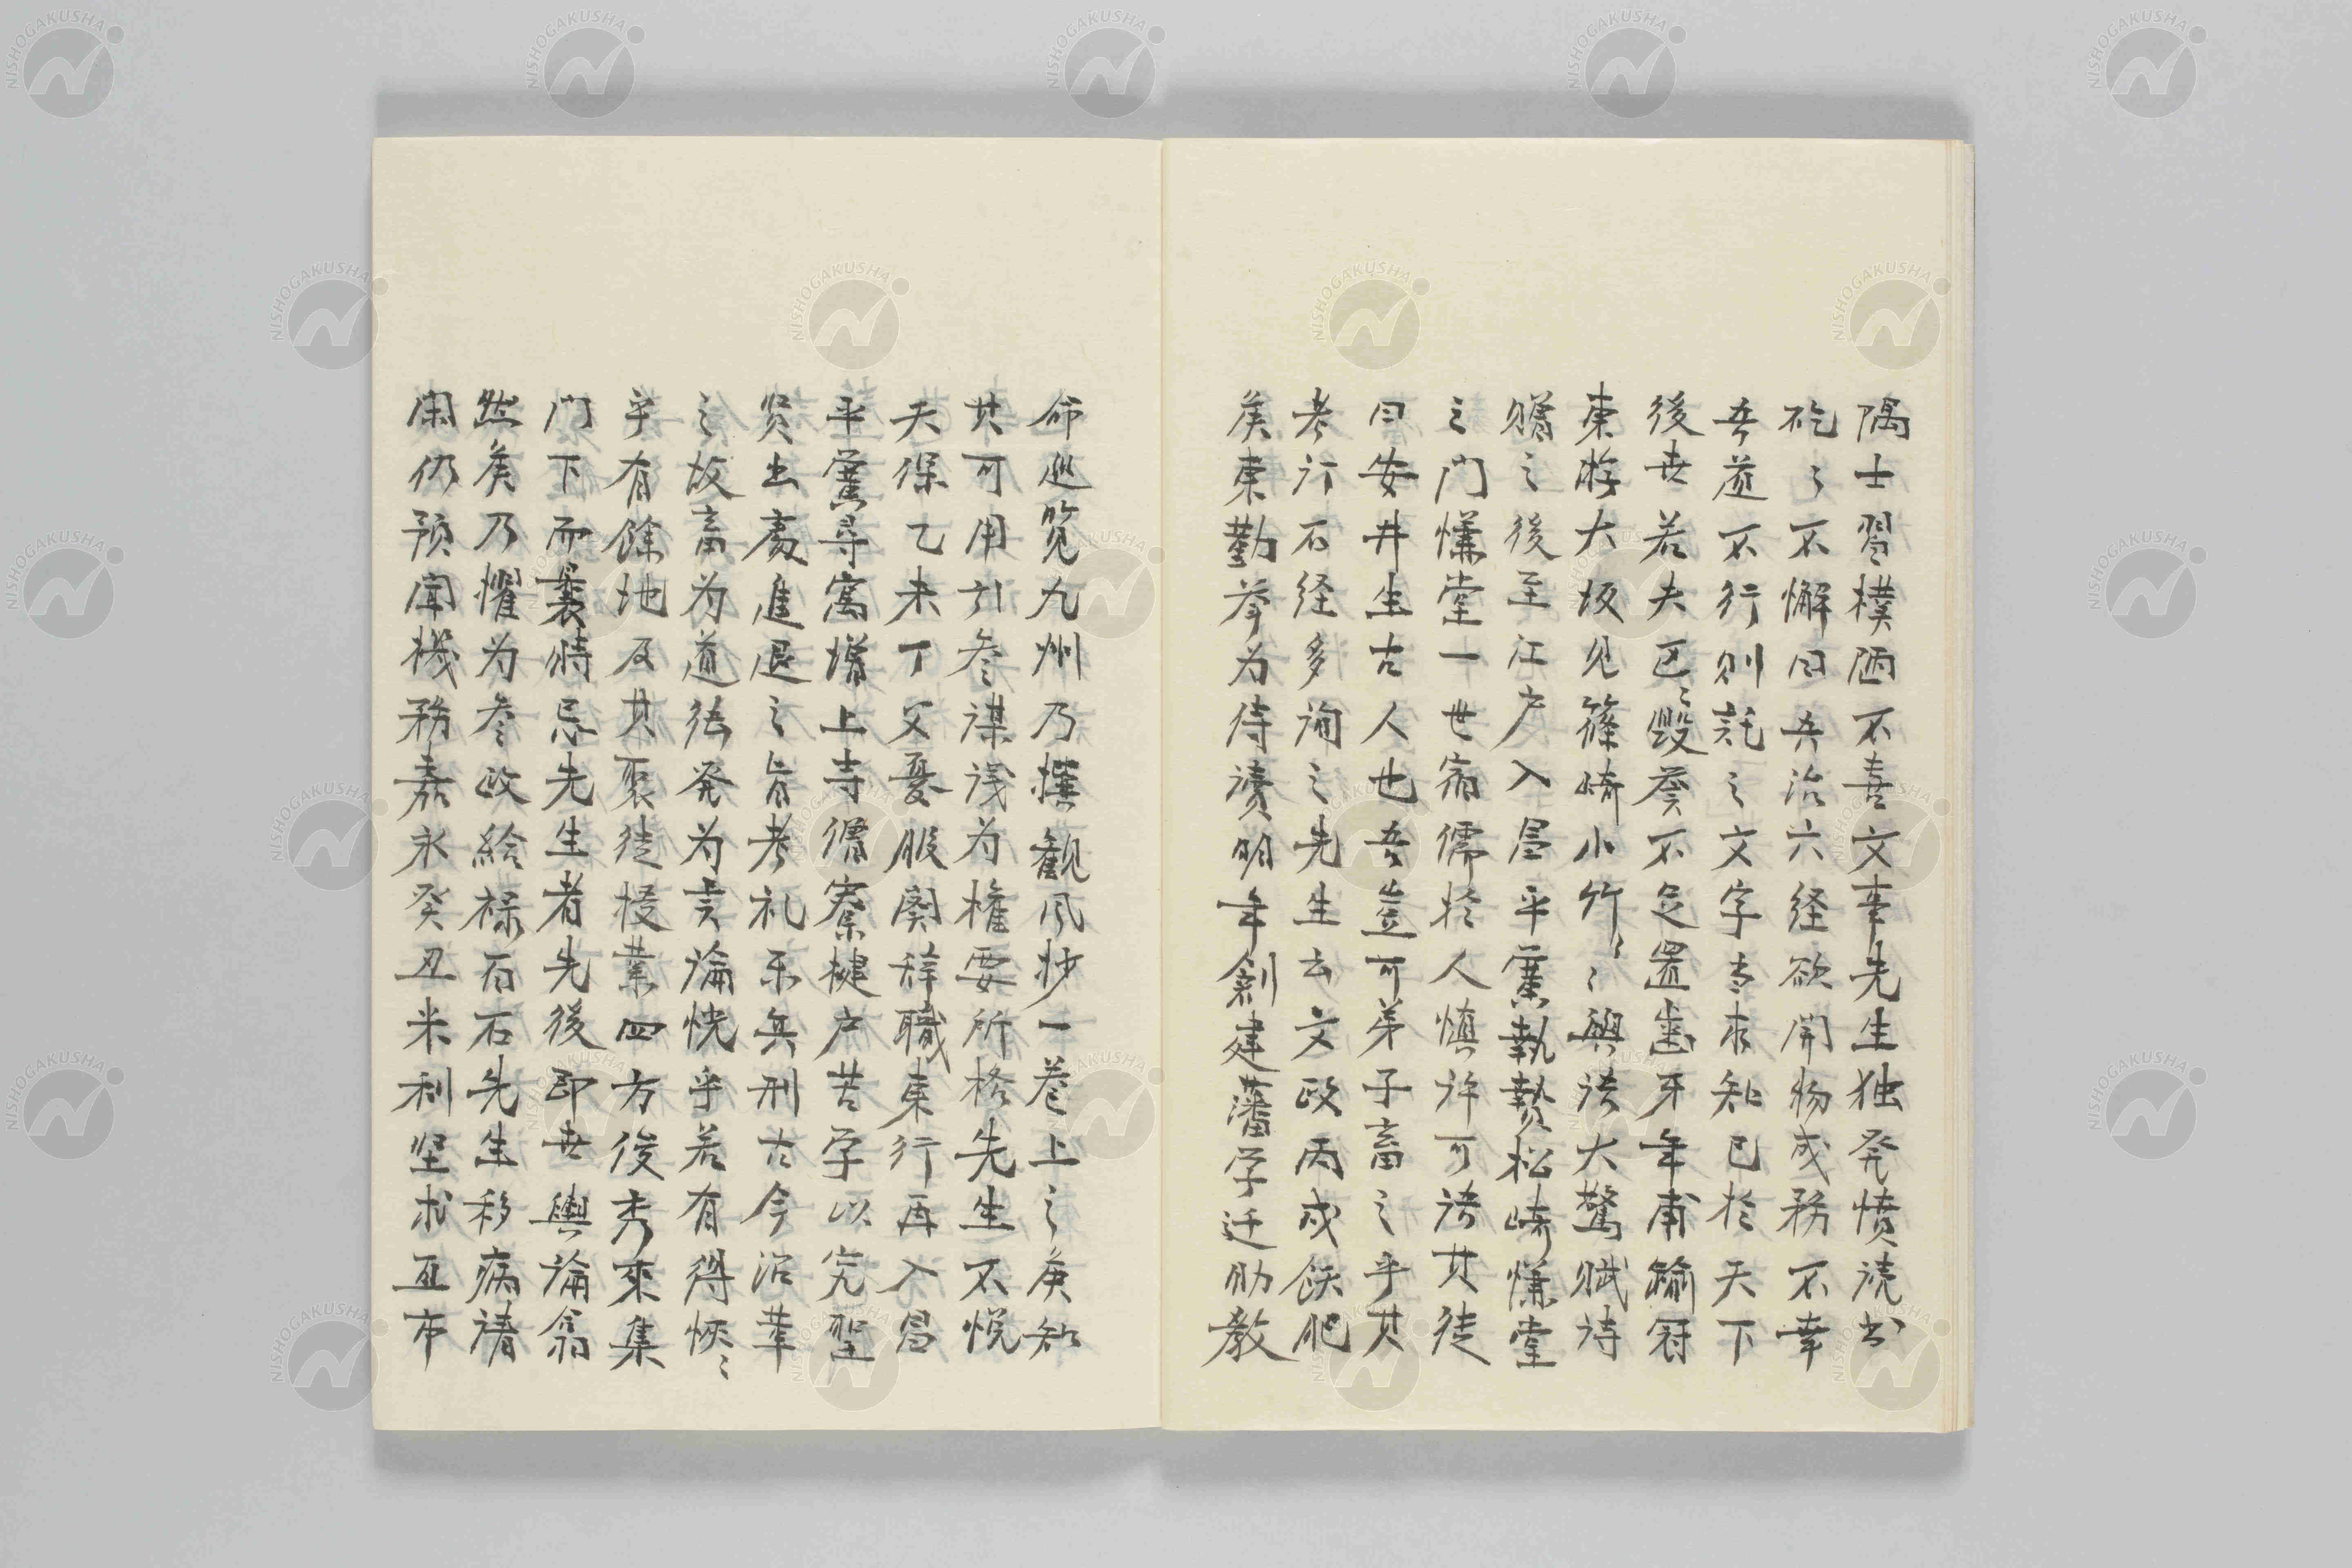 隅士習樸陋不喜文事先生独発憤読書
矻〻不懈曰吾治六経欲開物成務不幸
吾道不行則託之文字以求知己於天下
後世若夫区〻毀誉不足置歯牙年甫踰冠
東游大坂見篠崎小竹〻〻與語大驚賦詩
贐之後至江戸入昌平黌執贄松崎慊堂
之門慊堂一世宿儒於人慎許可語其徒
曰安井生古人也吾豈可弟子畜之乎其
考訂石経多詢之先生云文政丙戌飫肥
侯東勤挙為侍読明年創建藩学遷助教
命巡覧九州乃撰観風抄一巻上之侯知
其可用引参謀議為権要所格先生不悦
天保乙未丁父憂服闋辞職東行再入昌
平黌尋寓増上寺僧寮楗戸苦学以究聖
賢出處進退之旨考礼楽兵刑古今沿革
之故畜為道徳発為言論恍乎若有得恢〻
乎有餘地及其聚徒授業四方俊秀来集
門下而曩時忌先生者先後即世輿論翕
然侯乃擢為参政給禄百石先生移病請
閑仍預聞機務嘉永癸丑米利堅求互市
NISHOGAKUSHA